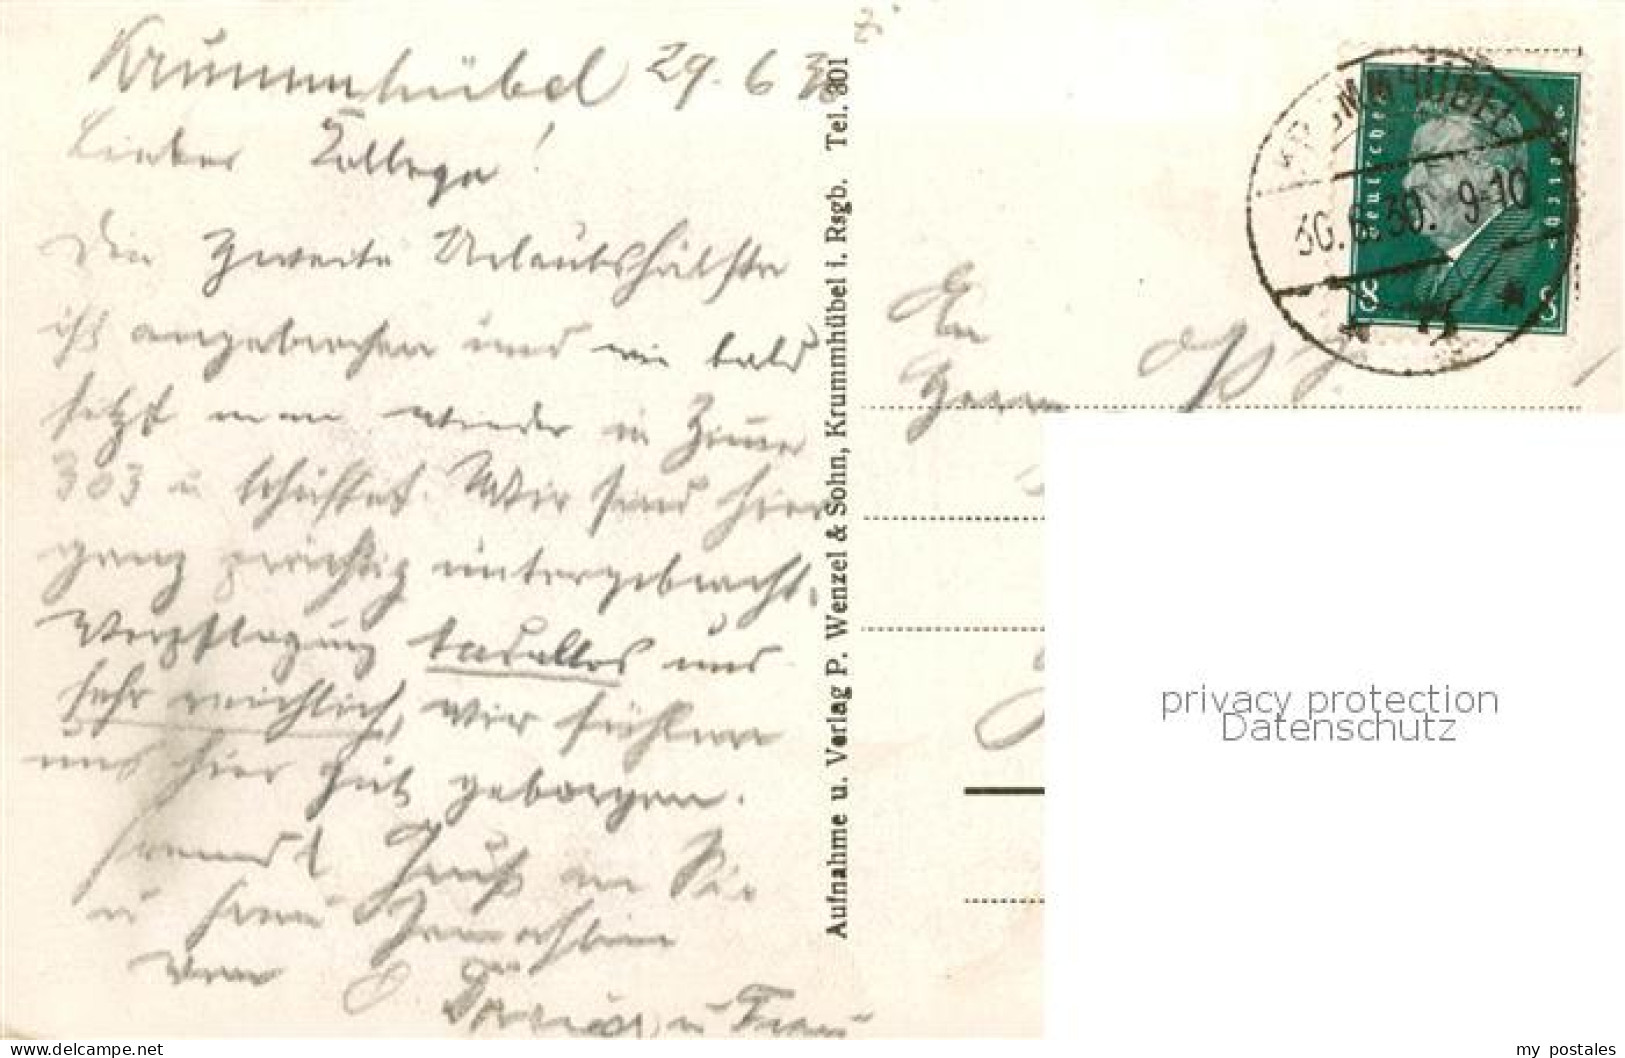 Krummhübel 29.6.30
Lieber Kollege!
Die zweite Urlaubshälfte
ist angebrochen und wie bald
sitzt man wieder in Zimmer
303 u schuftet. Wir sind hier
ganz prächtig untergebracht,
Verpflegung tadellos und
sehr reichlich, wir fühlen
uns hier gut geborgen.
Freundl Gruß an Sie
u Frau Gemahlin
von
u Frau
Aufnahme u. Verlag P. Wenzel & Sohn, Krummhübel i. Rsgb. Tel. 301
KRUMMHÜBEL
30.6.30. 9-10
Deutsches Reich
8 8
An
Herrn
privacy protection
Datenschutz
my postales website
my_postales.com